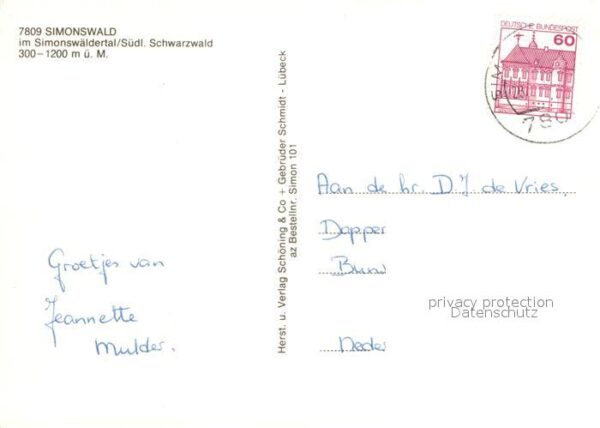 7809 SIMONSWALD
im Simonswäldertal/Südl. Schwarzwald
300–1200 m ü. M.
DEUTSCHE BUNDESPOST
60
SIM
780
Herst. u. Verlag Schöning & Co + Gebrüder Schmidt - Lübeck
az Bestellnr. Simon 101
Aan de hr. D.J. de Vries.
Dapper
Neder
Groetjes van
Jeannette
Mulder.
privacy protection
Datenschutz